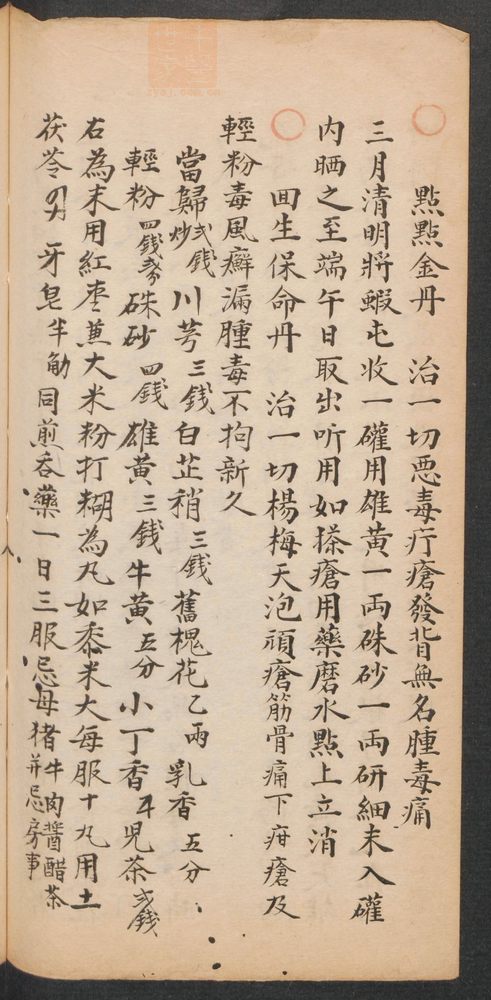 點點金丹　治一切惡毒疔瘡發背無名腫毒痛
三月清明將蝦屯收一礶用雄黃一両硃砂一両研細末入礶
内晒之至端午日取出听用如搽瘡用藥磨水點上立消
回生保命丹　治一切楊梅天泡頑瘡筋骨痛下疳瘡及
輕粉毒風癬漏腫毒不拘新久
當歸 弍錢炒 川芎 三錢 白芷稍 三錢 舊槐花 乙両 乳香 五分
輕粉 四錢 硃砂 四錢 雄黃 三錢 牛黃 五分 小丁香 兒茶 弍錢
右為末用紅枣蒸大米粉打糊為丸如黍米大每服十丸用土
茯苓 牙皂 同煎吞藥一日三服忌母猪牛肉醬醋茶并忌房事